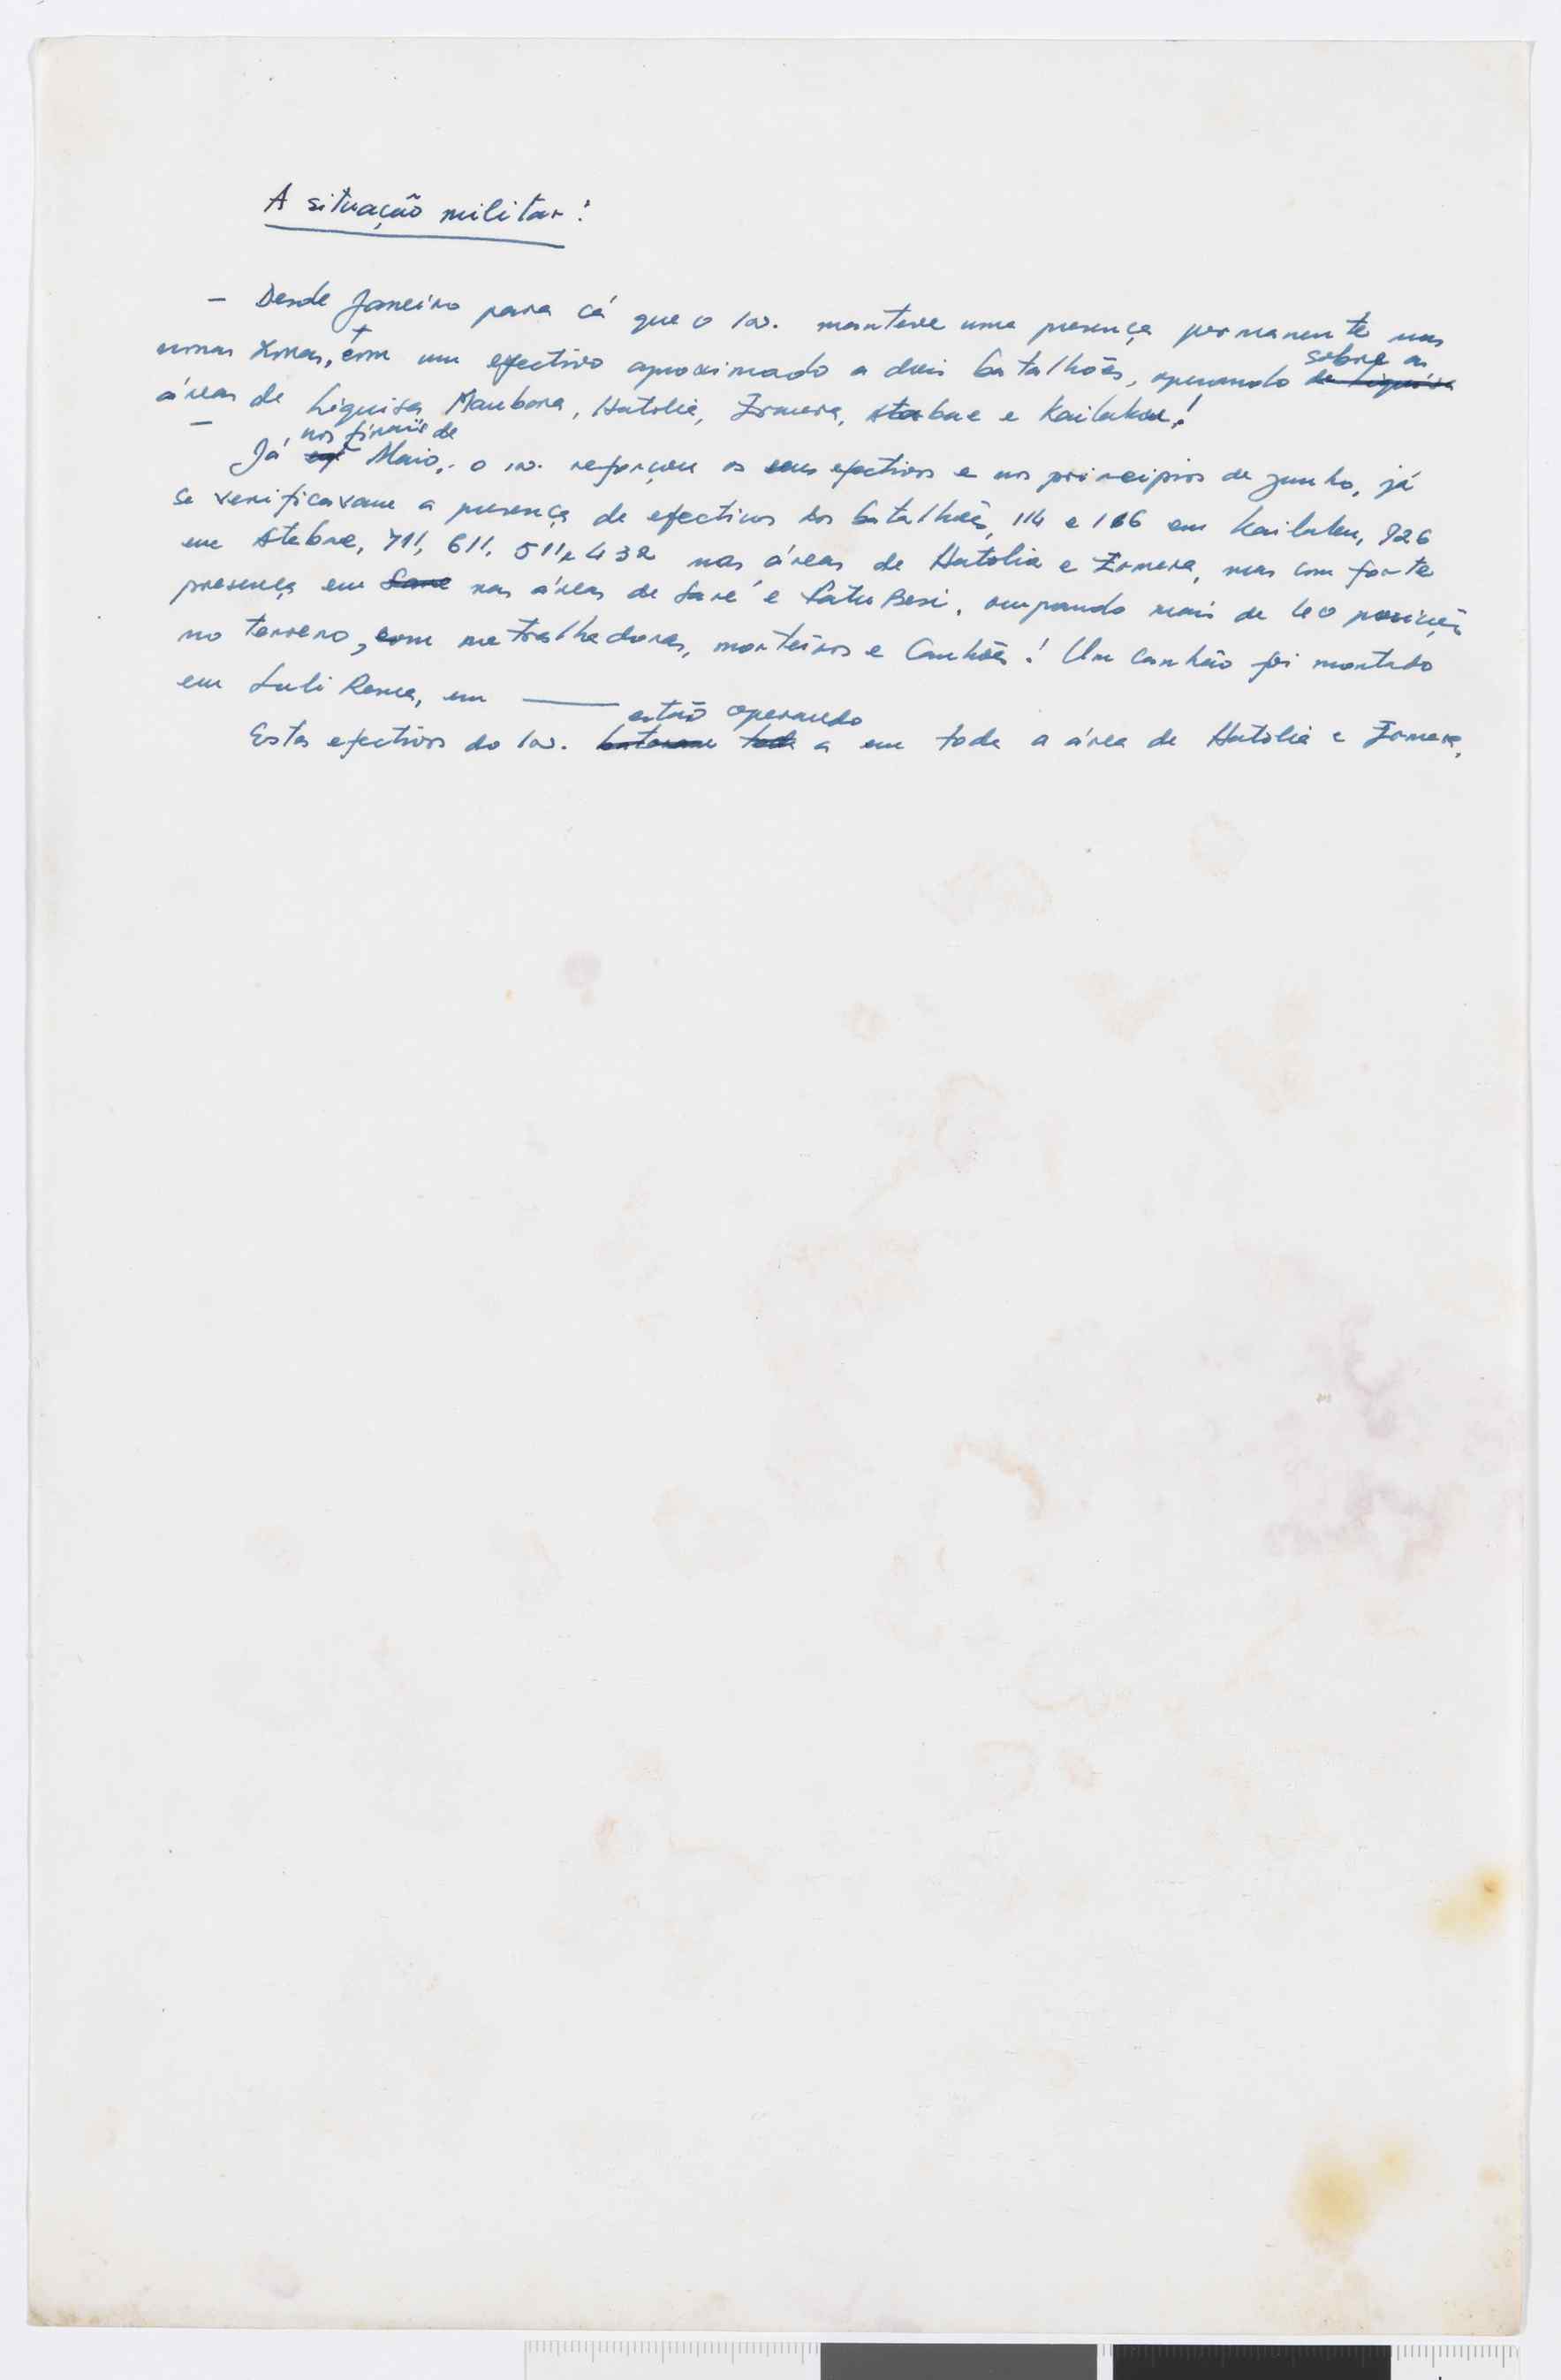 A situação militar:
- Desde Janeiro para cá que o In. manteve uma presença permanente nas
nossas zonas, com um efectivo aproximado a dois batalhões, operando sobre as
áreas de Liquisa, Maubara, Hatolia, Ermera, Atabae e Kailaku!
- Já nos finais de Maio, o In. reforçou os seus efectivos e nos principios de Junho, já
se verificavam a presença de efectivos dos batalhões, 114 e 116 em Kailaku, 726
em Atabae, 711, 611, 511 e 432 nas áreas de Hatolia e Ermera, mas com forte
presença em nas áreas de Saré e Fatu Besi, ocupando mais de 40 posições
no terreno, com metralhadoras, morteiros e Canhões! Um canhão foi montado
em Luli Roma, em ——
Estes efectivos do In. estão operando a em toda a área de Hatolia e Ermera,